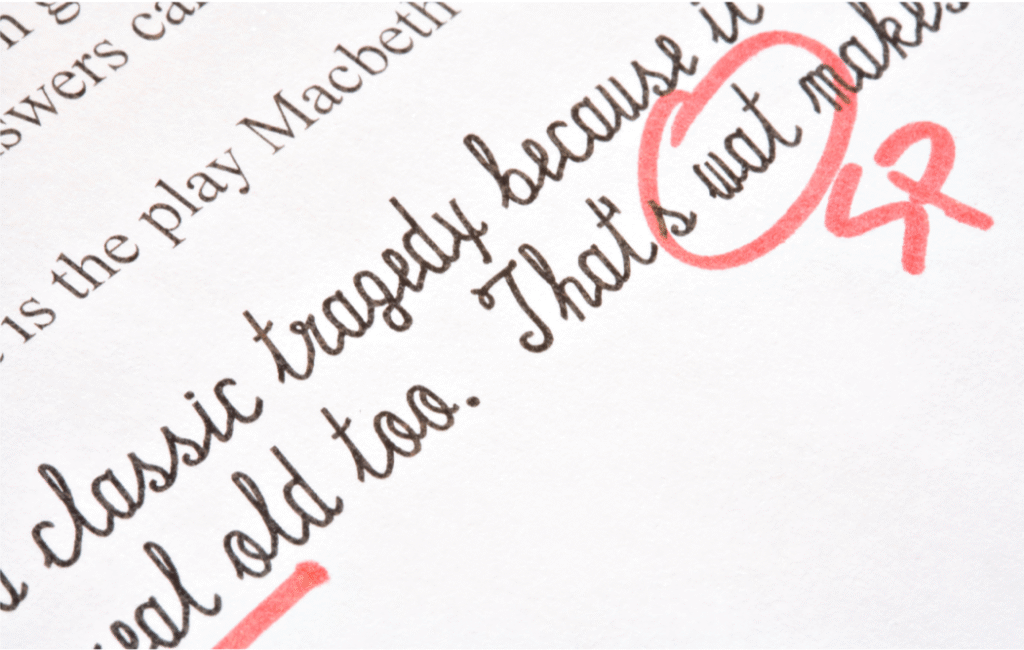 swers ca
is the play Macbeth
classic tragedy because it
real old too. That's wat makes
SP